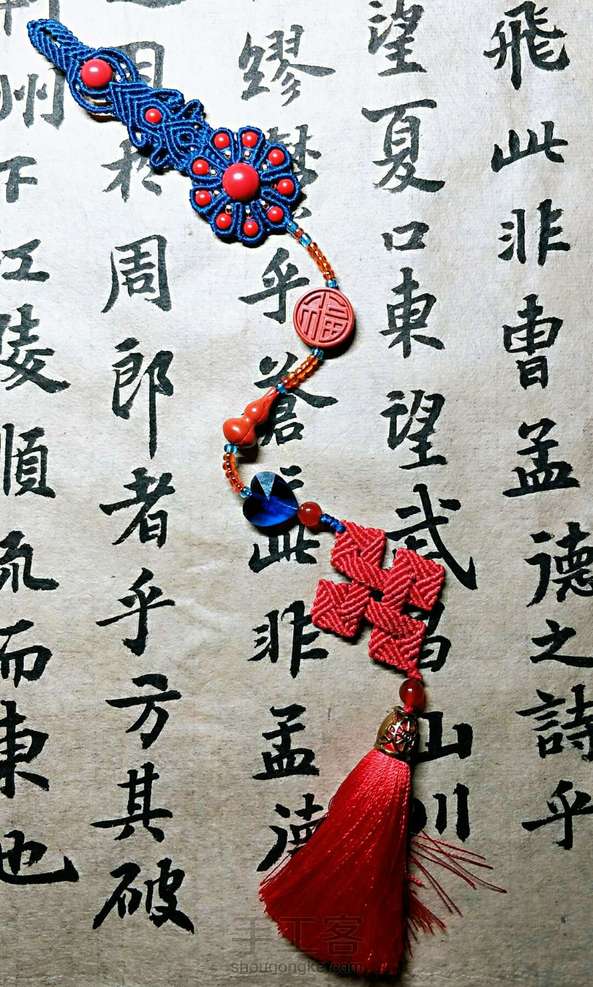 飛此非曹孟德之詩乎
望夏口東望武昌山川
繆乎蒼此非孟德
於周郎者乎方其破
州下江陵順流而東也
福
手工客
shougongke.com